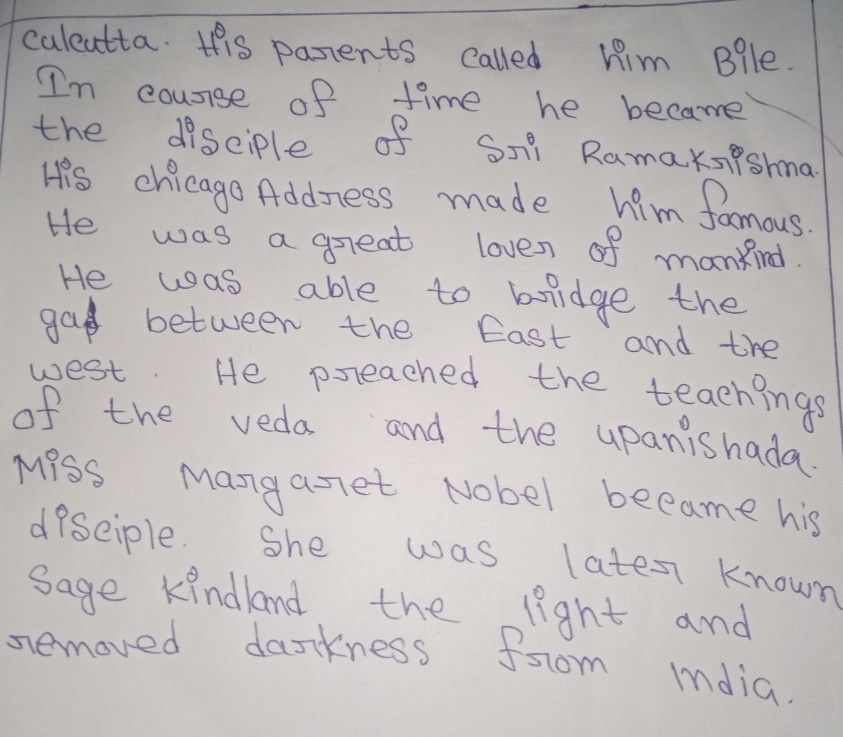 Calcutta. His parents called him Bile.
In course of time he became
the disciple of Sri Ramakrishna.
His chicago Address made him famous.
He was a great lover of mankind.
He was able to bridge the
gap between the East and the
west. He preached the teachings
of the veda and the upanishada.
Miss Margaret Nobel became his
disciple. She was later known
Sage kindland the light and
removed darkness from India.